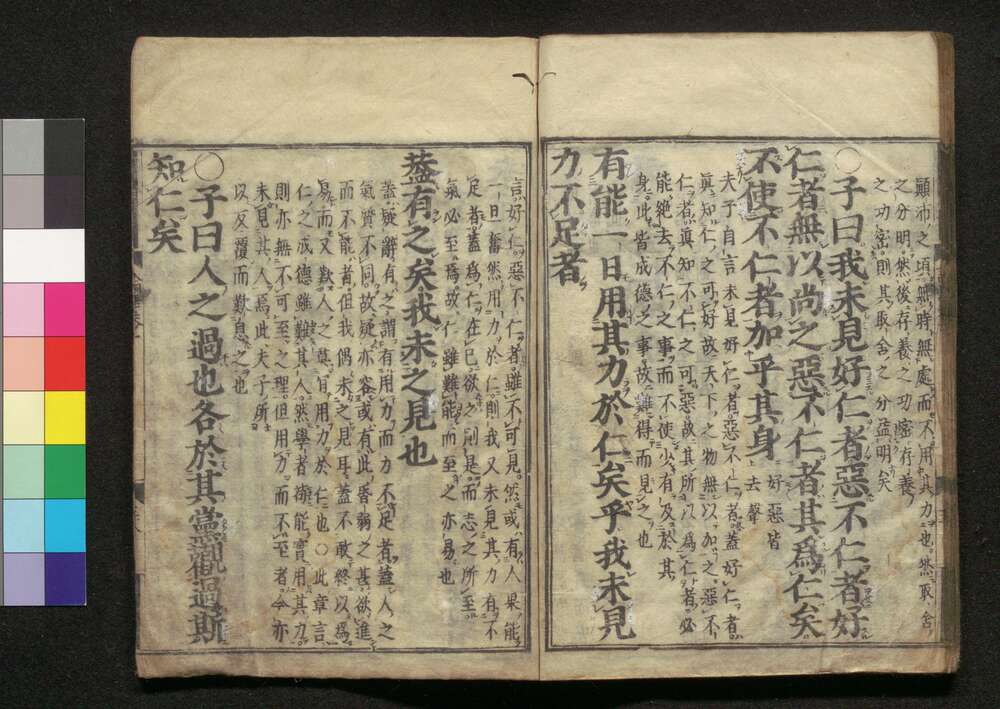 顚沛之頃無時無處而不用其力也然取舍
之分明然後存養之功密存養
之功密則其取舍之分益明矣
○子曰我未見好仁者惡不仁者好
仁者無以尚之惡不仁者其爲仁矣
不使不仁者加乎其身
好惡皆
去聲
夫子自言未見好仁者惡不仁者蓋好仁者
眞知仁之可好故天下之物無以加之惡不
仁者眞知不仁之可惡故其所以爲仁者必
能絶去不仁之事而不使少有及於其
身此皆成德之事故難得而見之也
有能一日用其力於仁矣乎我未見
力不足者
言好仁惡不仁者雖不可見然或有人果能
一旦奮然用力於仁則我又未見其力有不
足者蓋爲仁在己欲之則是而志之所至
氣必至焉故仁雖難能而至之亦易也
蓋有之矣我未之見也
蓋疑辭有之謂有用力而力不足者蓋人之
氣質不同故疑亦容或有此昏弱之甚欲進
而不能者但我偶未之見耳蓋不敢終以爲
易而又歎人之莫肯用力於仁也○此章言
仁之成德雖難其人然學者苟能實用其力
則亦無不可至之理但用力而不至者今亦
未見其人焉此夫子所
以反覆而歎息之也
○子曰人之過也各於其黨觀過斯
知仁矣